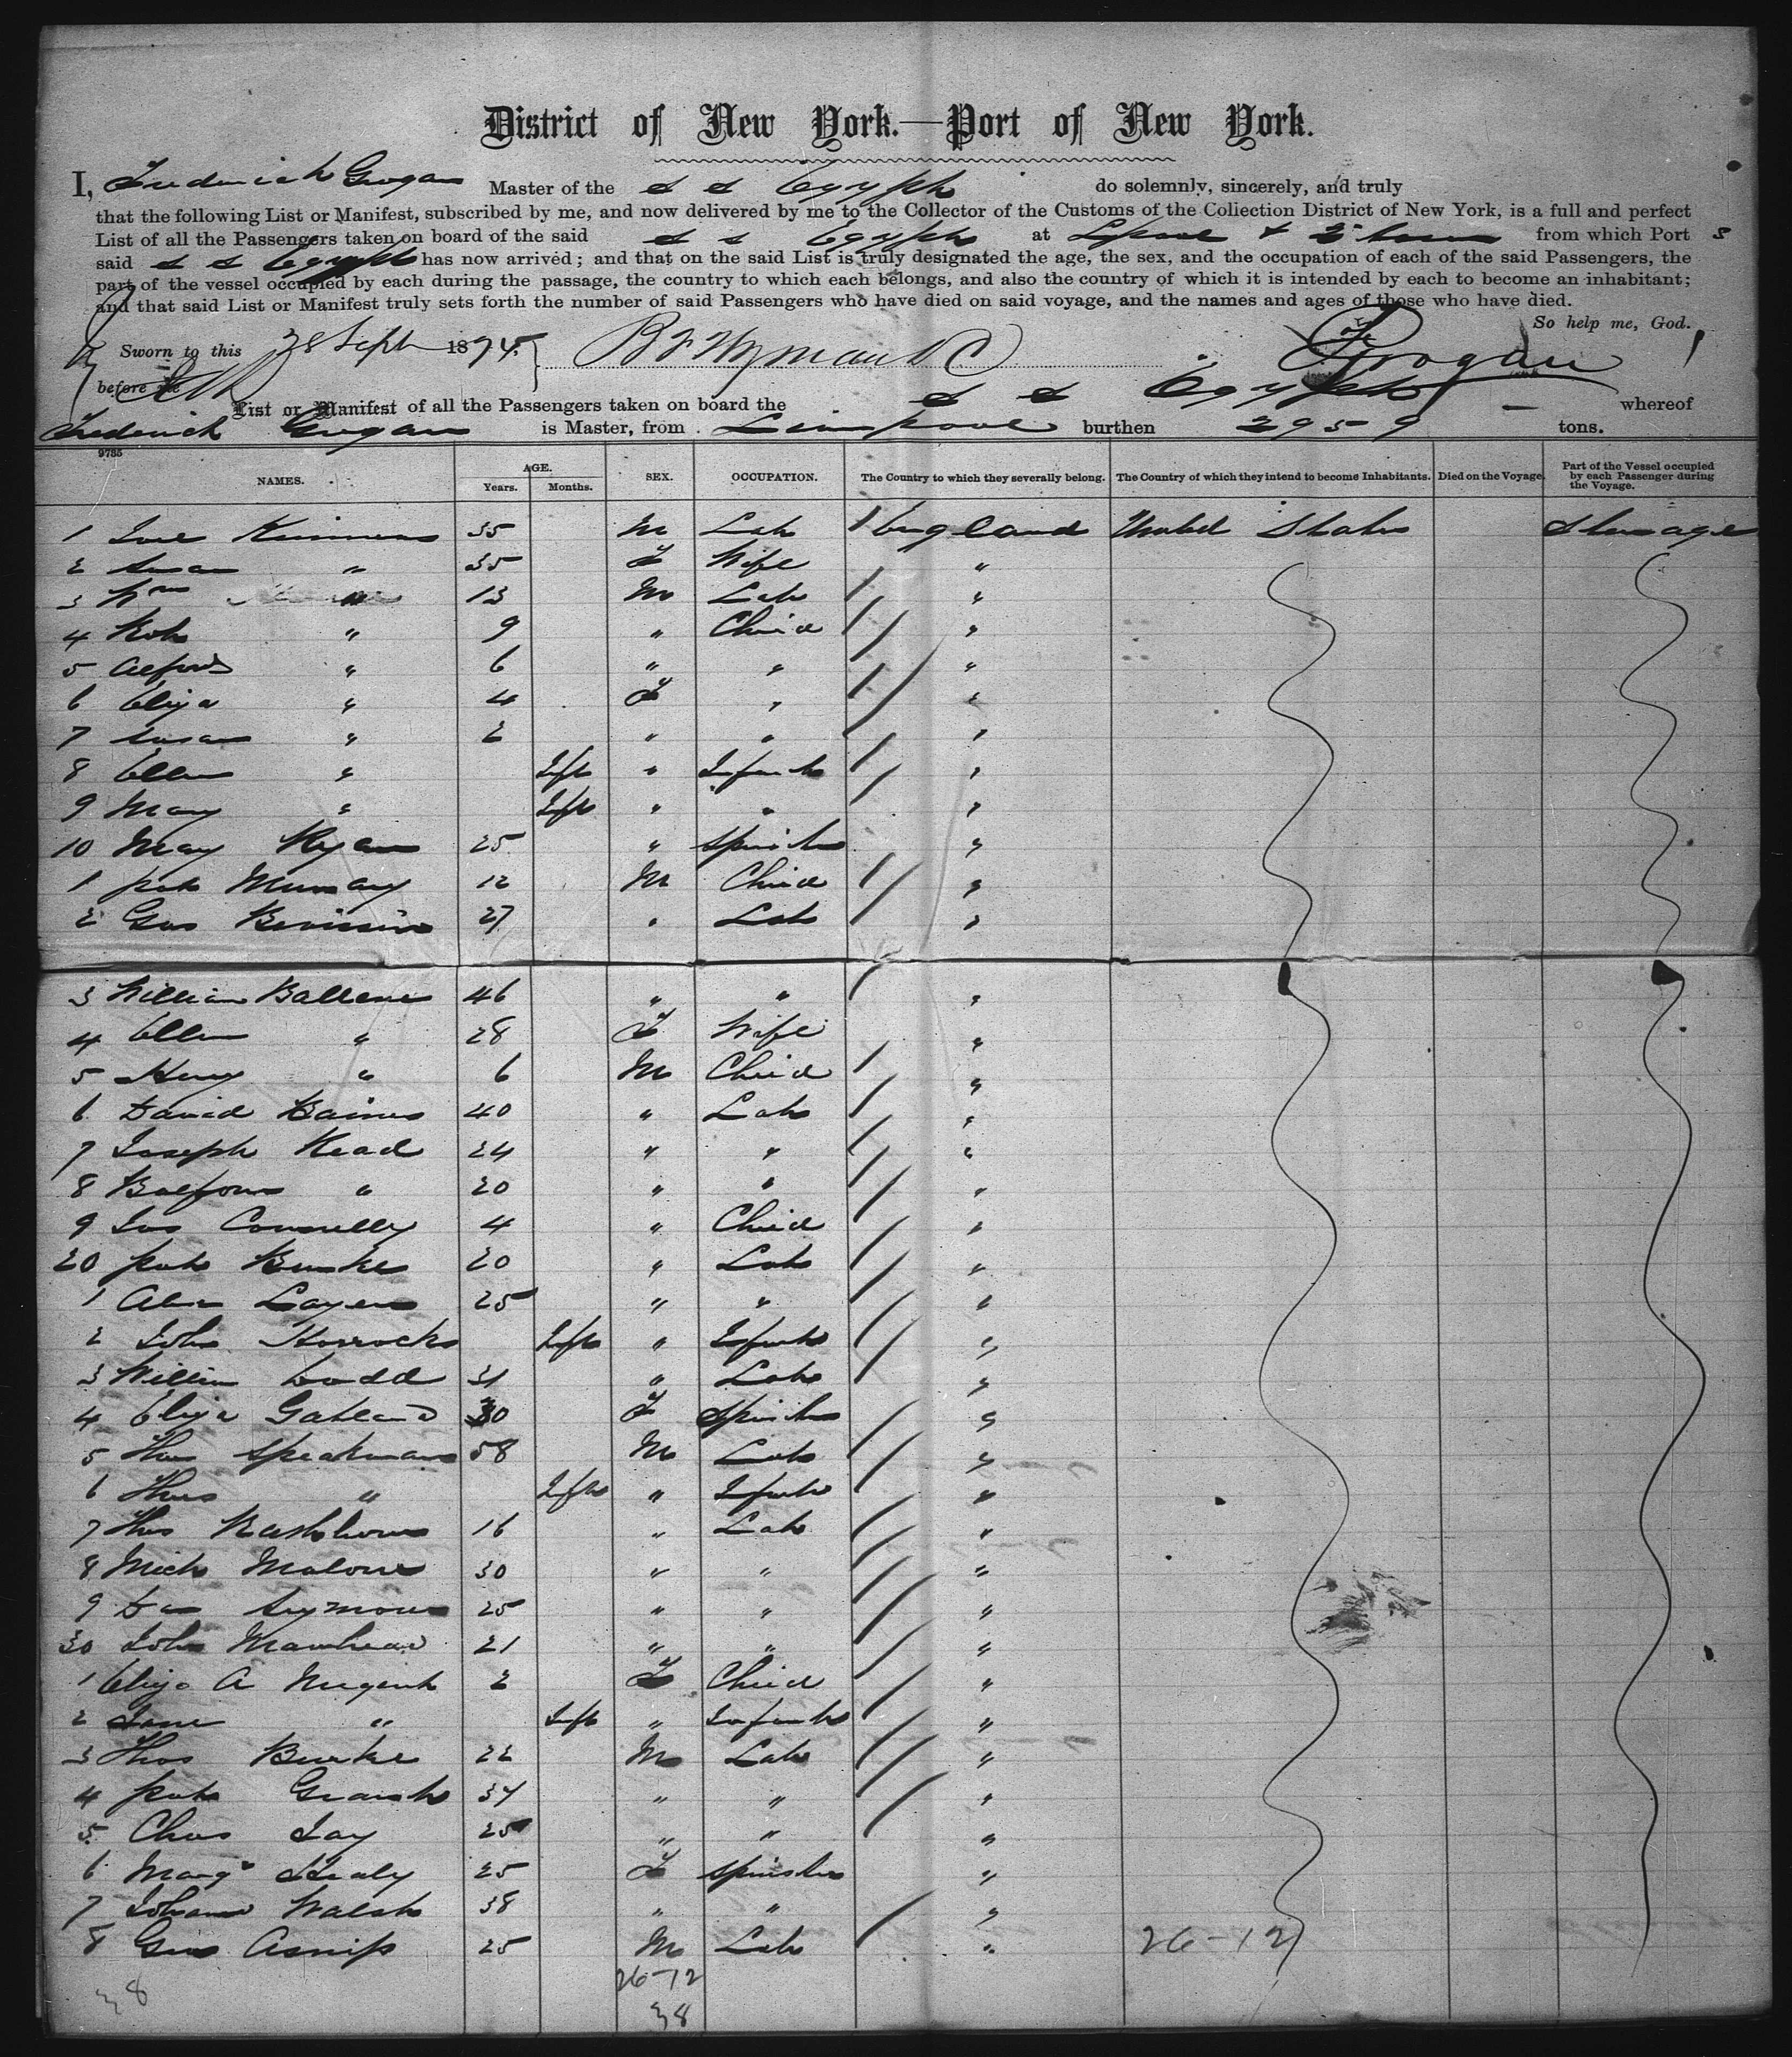 District of New York.—Port of New York.
I, Frederick Grogan Master of the S S Egypt do solemnly, sincerely, and truly
that the following List or Manifest, subscribed by me, and now delivered by me to the Collector of the Customs of the Collection District of New York, is a full and perfect
List of all the Passengers taken on board of the said S S Egypt at Lpool & from which Port s
said S S Egypt has now arrived; and that on the said List is truly designated the age, the sex, and the occupation of each of the said Passengers, the
part of the vessel occupied by each during the passage, the country to which each belongs, and also the country of which it is intended by each to become an inhabitant;
and that said List or Manifest truly sets forth the number of said Passengers who have died on said voyage, and the names and ages of those who have died.
So help me, God.
Sworn to this 28 Sept 1874. B F Wyman D C Grogan
before me
List or Manifest of all the Passengers taken on board the S S Egypt whereof
Frederick Grogan is Master, from Liverpool burthen 2959 tons.
9785
NAMES. AGE. Years. Months. SEX. OCCUPATION. The Country to which they severally belong. The Country of which they intend to become Inhabitants. Died on the Voyage. Part of the Vessel occupied by each Passenger during the Voyage.
1 35 M Lab England United States Steerage
2 Susan " 35 F Wife "
3 Wm " 13 M Lab "
4 Rob " 9 " Child "
5 Alfred " 6 " " "
6 Eliza " 4 F " "
7 Susan " 2 " " "
8 Ellen " Inft " Infant "
9 Mary " Inft " " "
10 Mary Ryan 25 " Spinster "
1 Pat Murray 12 M Child "
2 Geo 27 " Lab "
3 William Ballene 46 " " "
4 Ellen " 28 F Wife "
5 Henry " 6 M Child "
6 David Baines 40 " Lab "
7 Joseph Read 24 " " "
8 Balfour " 20 " " "
9 Jas Connelly 4 " Child "
20 Pat Burke 20 " Lab "
1 25 " " "
2 John Horrocks Inft " Infant "
3 William Dodd 31 " Lab "
4 Eliza 30 F Spinster "
5 Thos Speakman 58 M Lab "
6 Thos " Inft " Infant "
7 Thos 16 " Lab "
8 Mich Malone 30 " " "
9 Dan Seymour 25 " " "
30 John 21 " " "
1 Eliza A Nugent 2 F Child "
2 Jane " Inft " Infant "
3 Thos Burke 22 M Lab "
4 Pat " " "
5 Chas Jay 25 " " "
6 Margt Healy 25 F Spinster "
7 Johanna Walsh 38 " " "
8 Geo 25 M Lab " 26-12
38 26-12
38